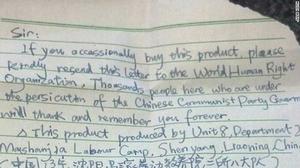 Sir:
If you occassionally buy this product, please
kindly resend this letter to the World Human Right
Organization. Thousands people here who are under
the persicution of the Chinese Communist Party Govern
will thank and remember you forever.
This product produced by Unit 8, Department 2
Mashanjia Labour Camp, Shenyang, Liaoning, Chi